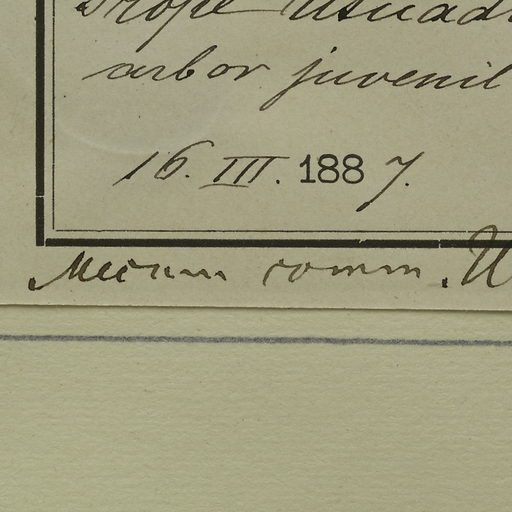 prope
arbor juvenil
16. III. 1887.
Mecum comm. U